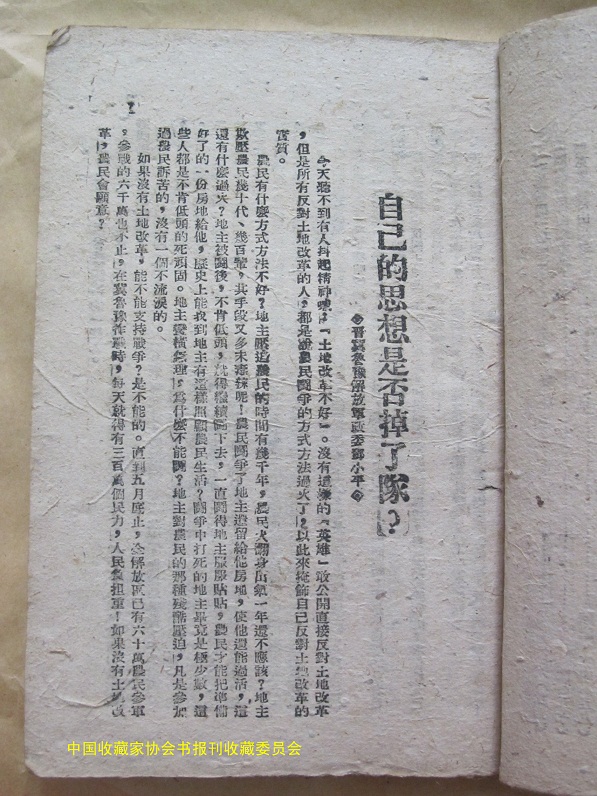 自己的思想是否掉了隊?
◇晋冀魯豫解放軍政委鄧小平◇
今天聽不到有人抖起精神喊:『土地改革不好』。沒有這樣的『英雄』敢公開直接反對土地改革
,但是所有反對土地改革的人,都是說農民鬪爭的方式方法過火了,以此來掩飾自己反對土地改革的
實質。
農民有什麽方式方法不好?地主壓迫農民的時間有幾千年,農民火翻身出氣一年還不應該?地主
欺壓農民幾十代、幾百輩,其手段又多末毒辣呢!農民鬪爭了地主還留給他房地,使他還能過活,這
還有什麽過火?地主被鬪後,不肯低頭,就得繼續鬪下去,一直鬪得地主服服貼貼,農民才能把準備
好了的一份房地給他,歷史上能找到地主有這樣照顧農民生活?鬪爭中打死的地主畢竟是極少數,這
些人都是不肯低頭的死頑固。地主蠻橫無理,爲什麽不能鬪?地主對農民的那種殘酷壓迫,凡是參加
過農民訴苦的,沒有一個不流淚的。
如果沒有土地改革,能不能支持戰爭?是不能的。直到五月底止,全解放區已有六十萬農民參軍
,參戰的六千萬也不止,在冀魯豫作戰時,每天就得有三百萬個民力,人民負担重!如果沒有土地改
革,農民會願意?
2
中国收藏家协会书报刊收藏委员会